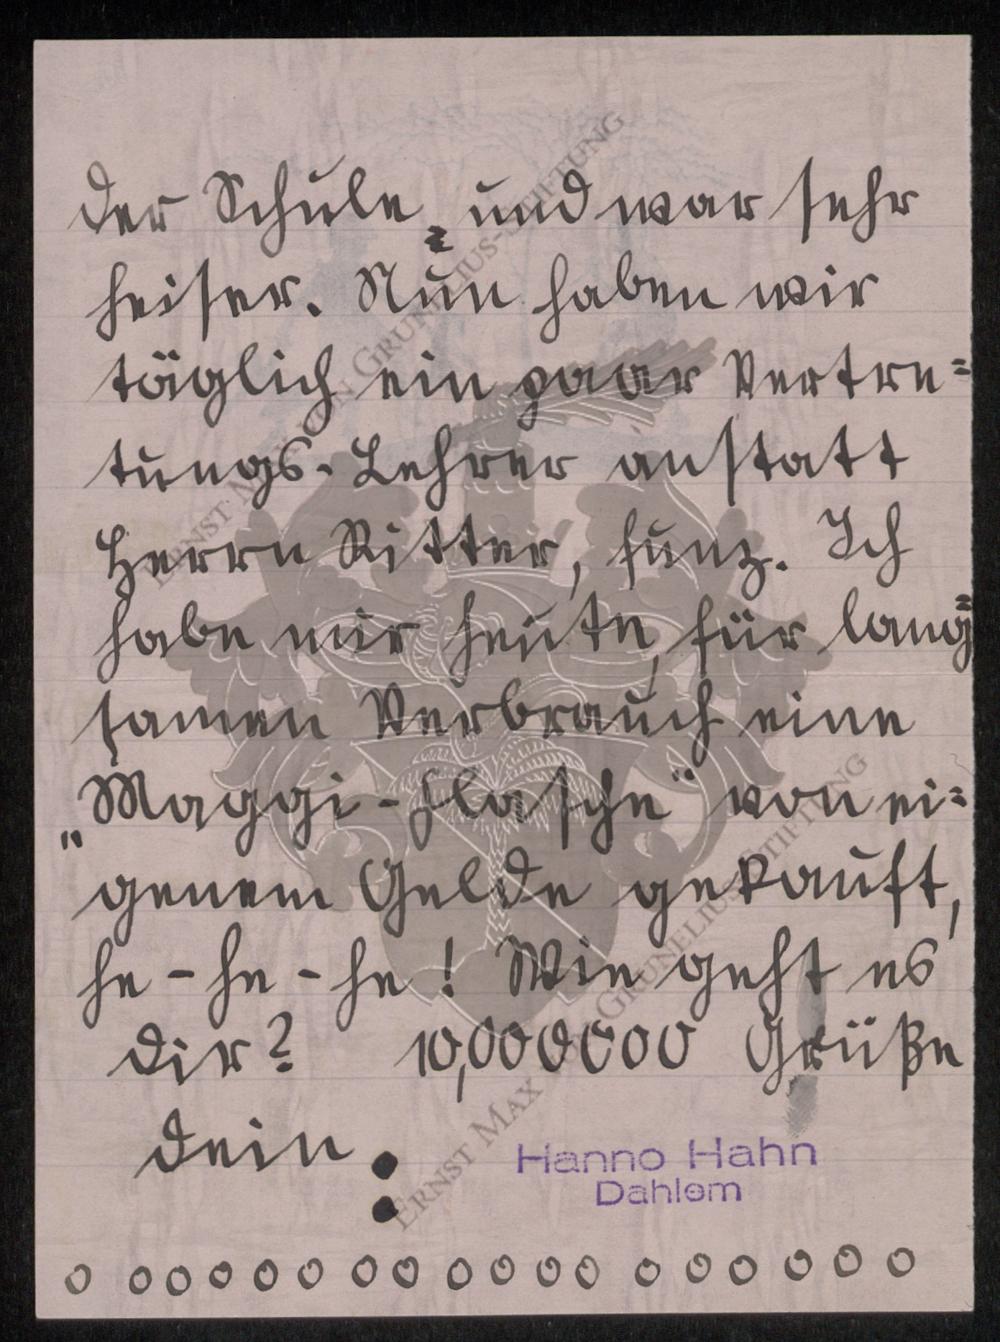 der Schule, und war sehr
heiser. Nun haben wir
täglich ein paar Vertre=
tungs-Lehrer anstatt
Herrn Ritter, hunz. Ich
habe mir heute, für lang=
samen Verbrauch eine
"Maggi-Flasche" von ei=
genem Gelde gekauft,
he-he-he! Wie geht es
dir? 10,000000 Grüße
dein:
Hanno Hahn
Dahlem
ERNST MAX VON GRUNELIUS-STIFTUNG
ERNST MAX VON GRUNELIUS-STIFTUNG